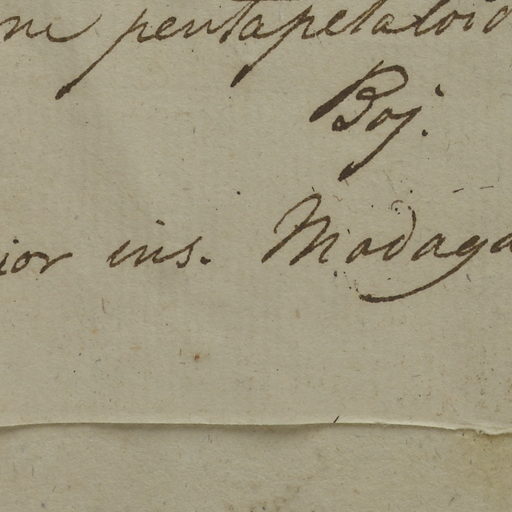 ne pentapetaloid
Boj.
ior ins. Madaga